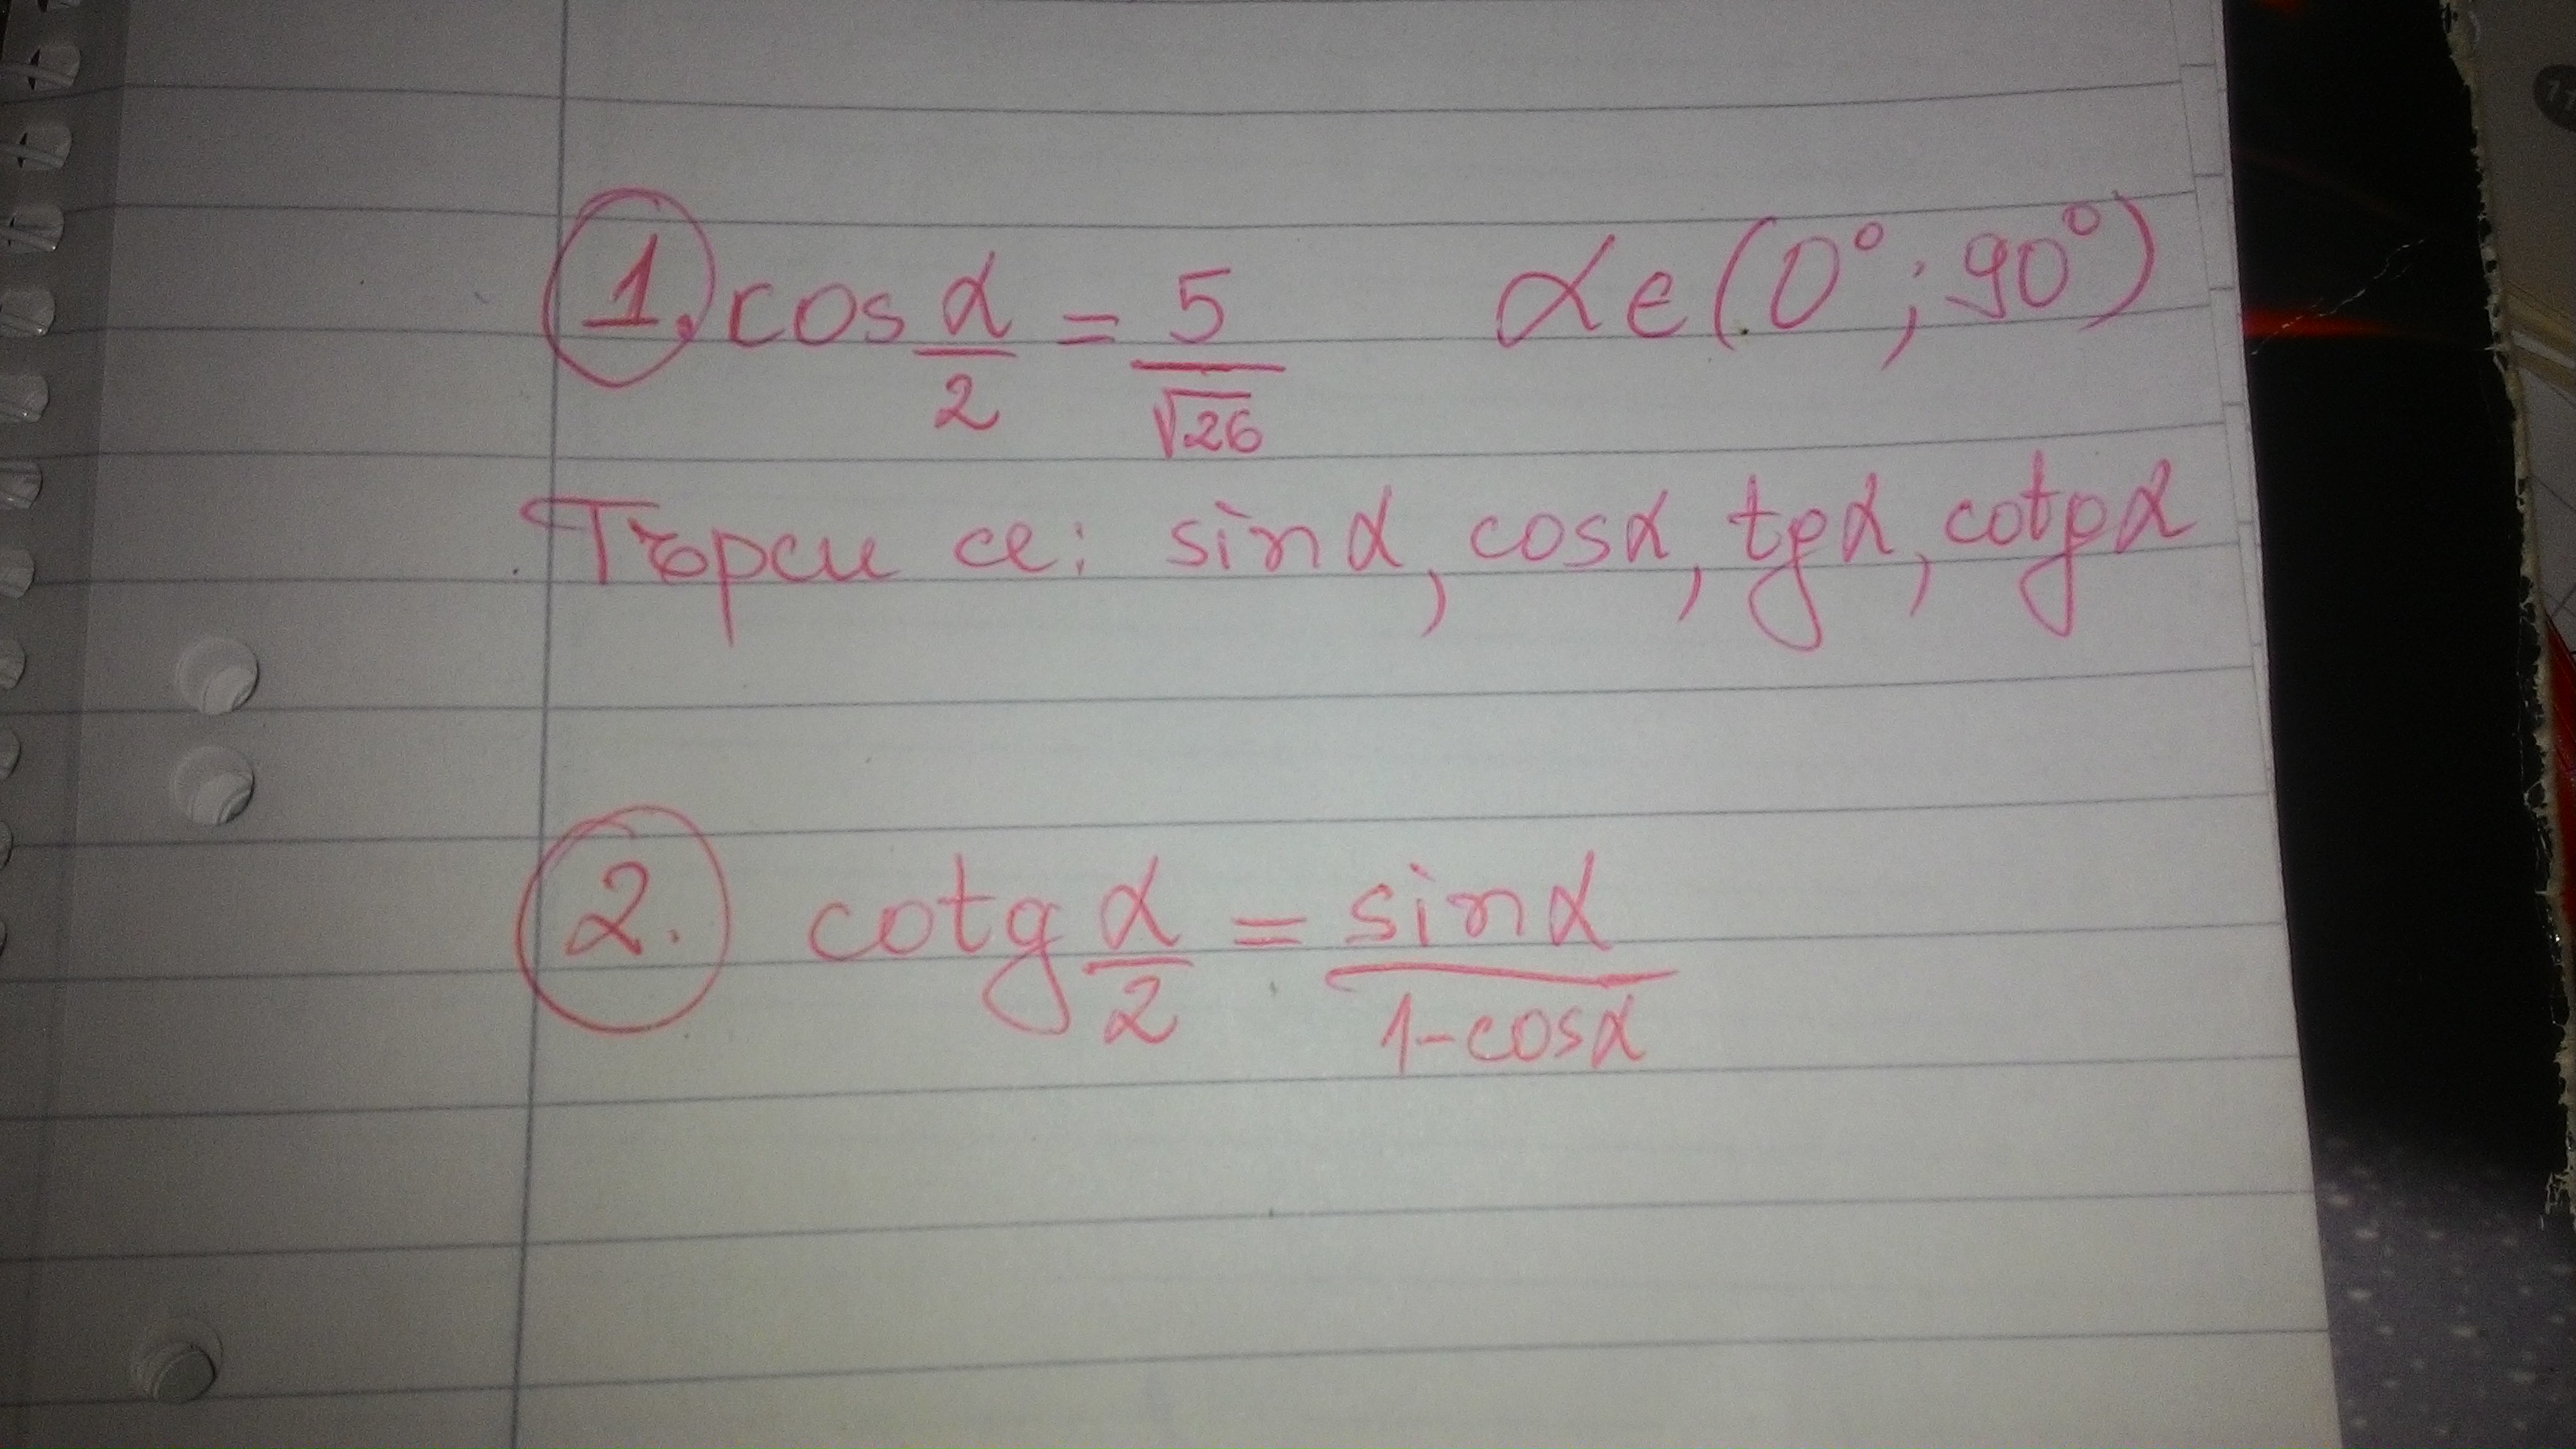 1. cos α/2 = 5/√26 α∈(0°; 90°)
Търси се: sinα, cosα, tgα, cotgα
2. cotg α/2 = sinα/1-cosα